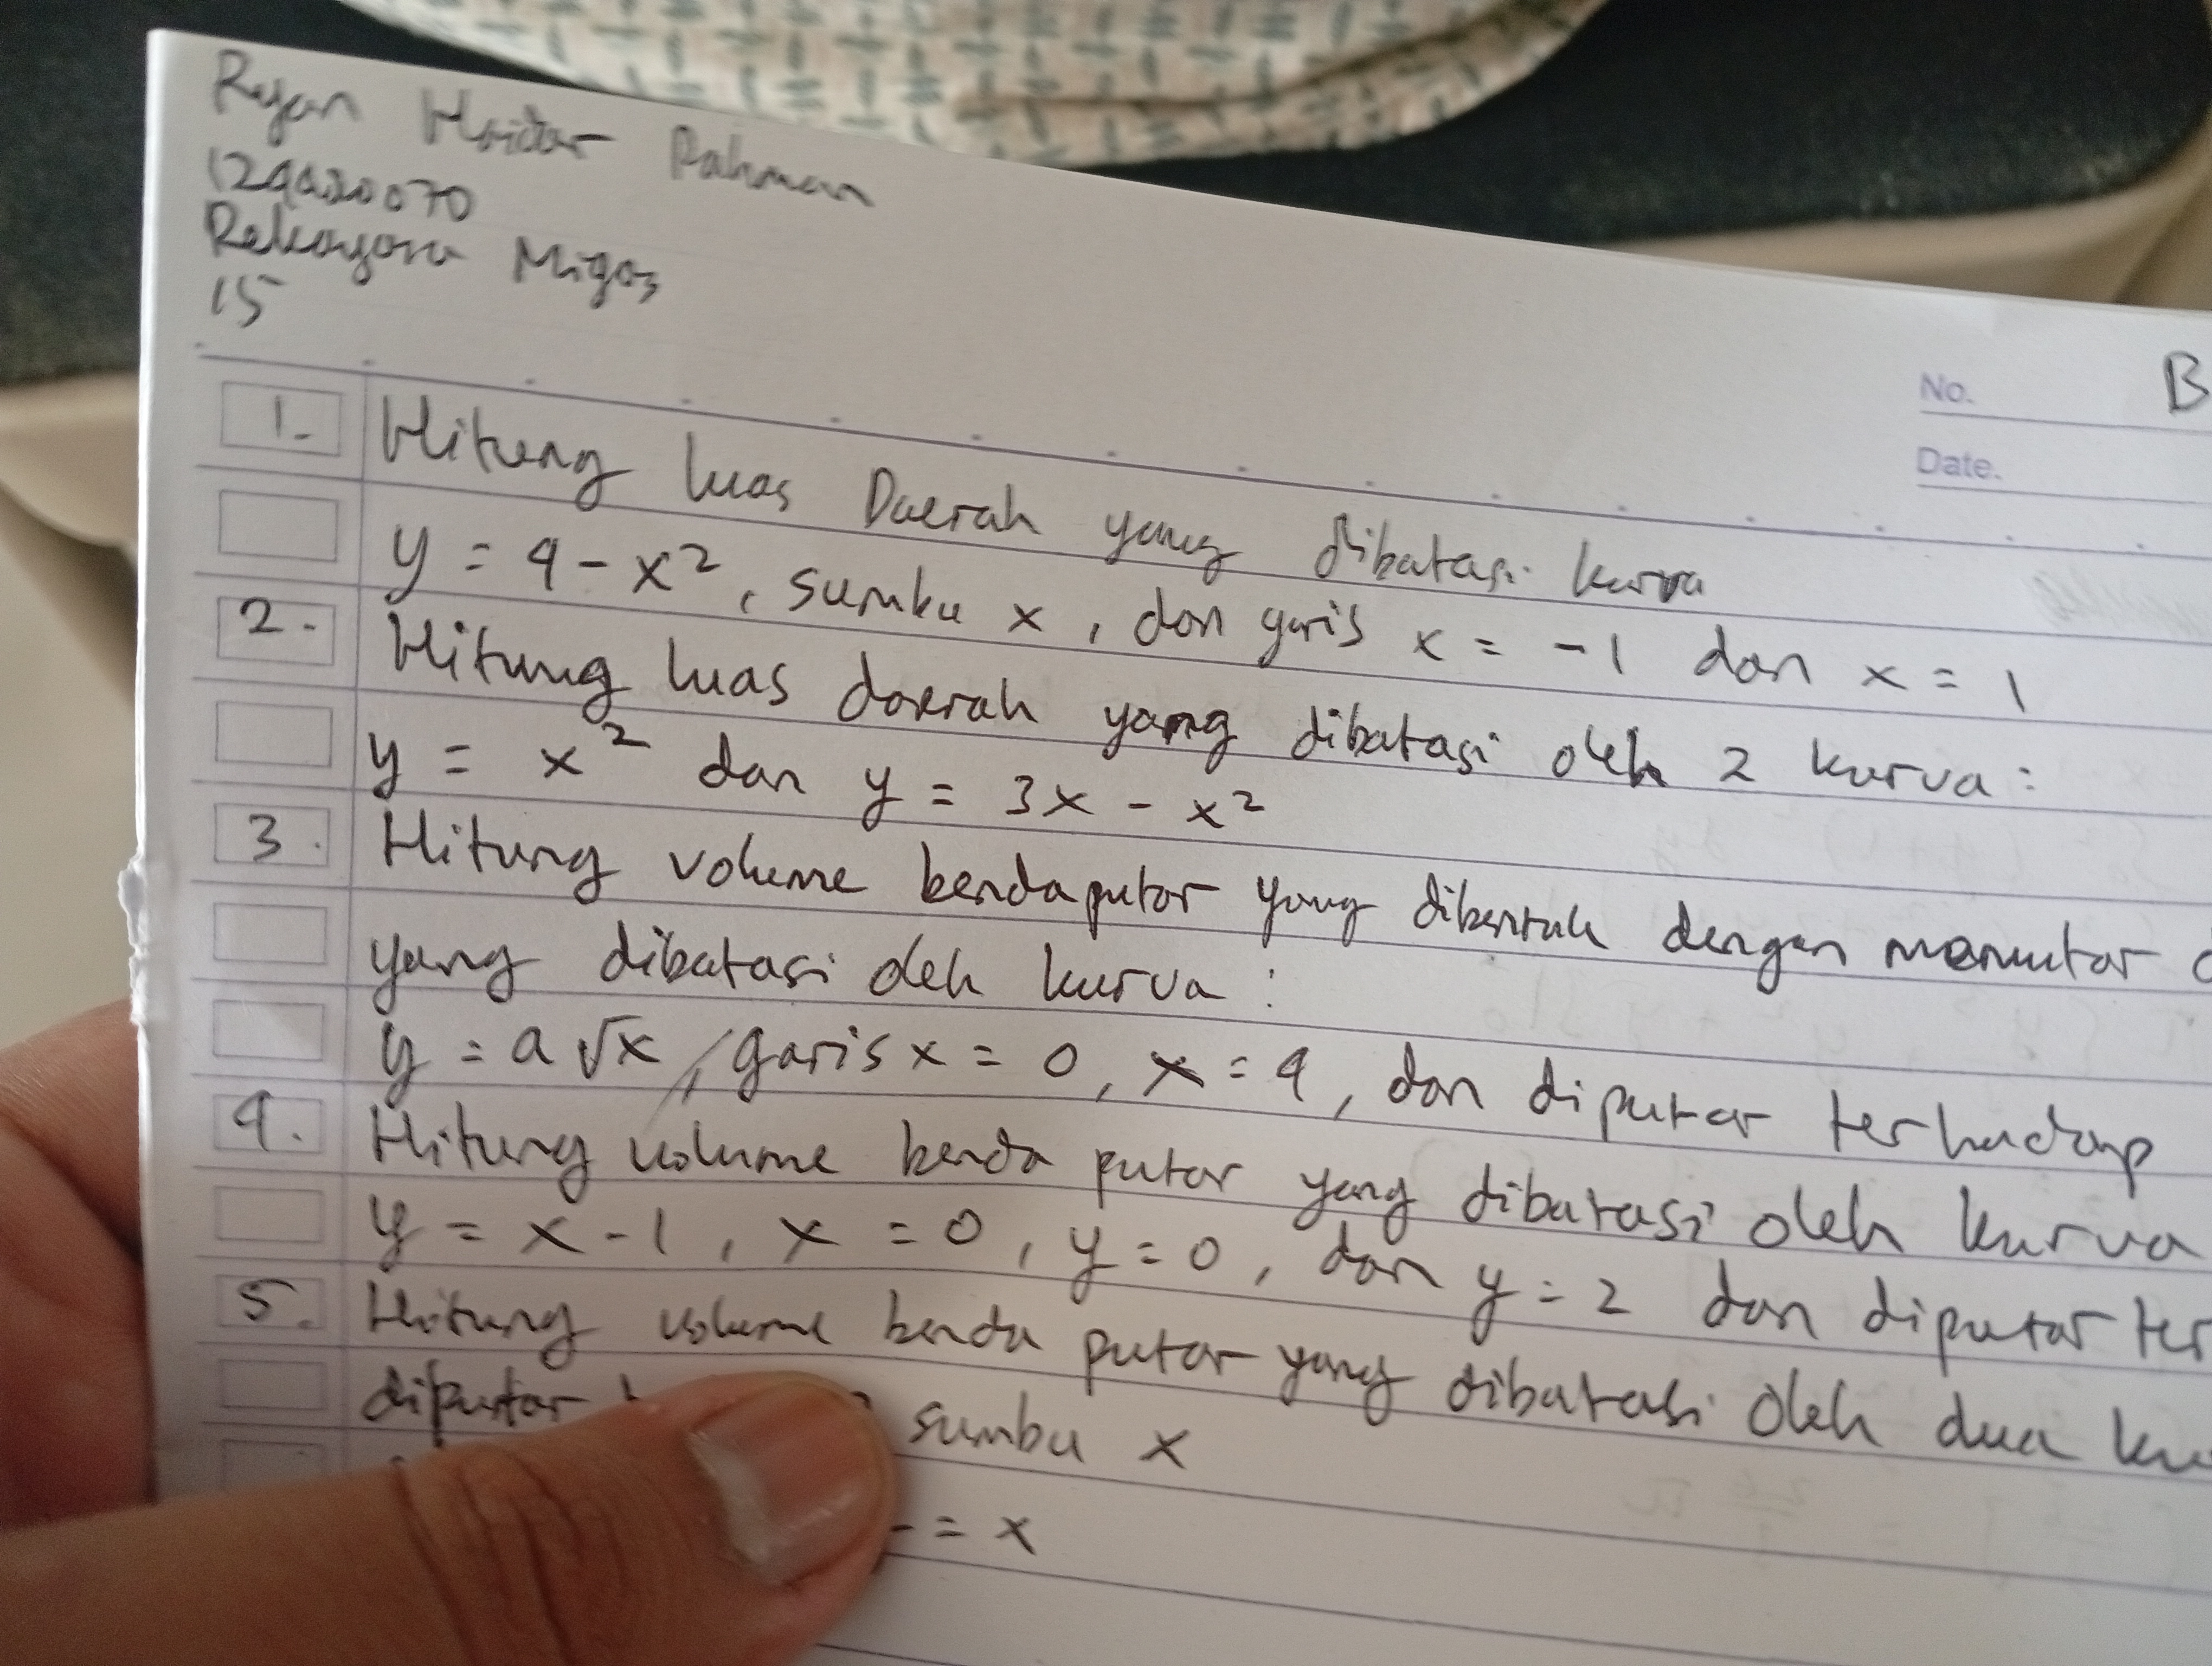 Ryan Haidar Rahman
Rekayasa Migas
15
No. B
Date.
1. Hitung luas Daerah yang dibatasi kurva
y = 4 - x², sumbu x, dan garis x = -1 dan x = 1
2. Hitung luas daerah yang dibatasi oleh 2 kurva :
y = x² dan y = 3x - x²
3. Hitung volume benda putar yang dibentuk dengan memutar
yang dibatasi oleh kurva :
y = a √x, garis x = 0, x = 4, dan diputar terhadap
4. Hitung volume benda putar yang dibatasi oleh kurva
y = x - 1, x = 0, y = 0, dan y = 2 dan diputar ter
5. Hitung volume benda putar yang dibatasi oleh dua ku
diputar sumbu x
= x